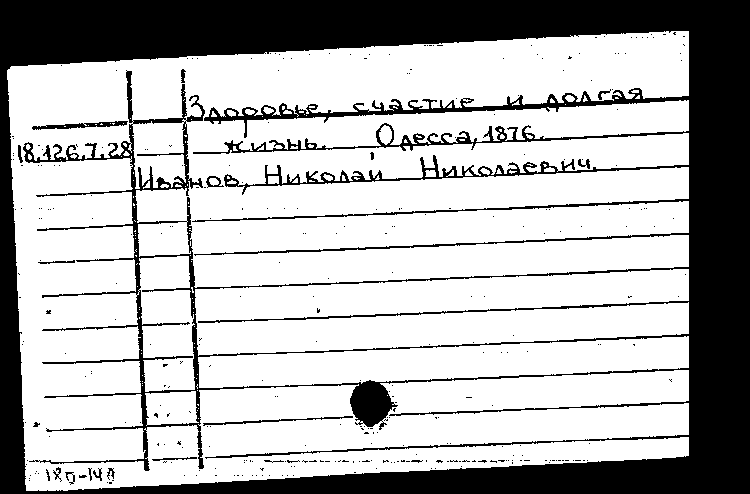 Здоровье, счастие и долгая
18.126.7.28 жизнь. Одесса, 1876.
Иванов, Николай Николаевич.